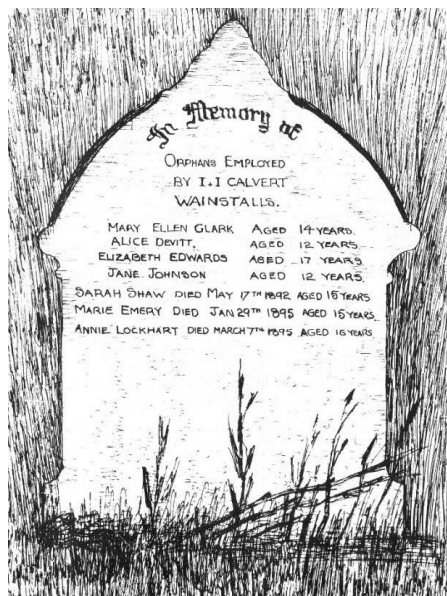 In Memory of
ORPHANS EMPLOYED
BY I & I CALVERT
WAINSTALLS.
MARY ELLEN CLARK AGED 14 YEARS.
ALICE DEVITT, AGED 12 YEARS.
ELIZABETH EDWARDS AGED 17 YEARS
JANE JOHNSON AGED 12 YEARS.
SARAH SHAW DIED MAY 17TH 1892 AGED 15 YEARS
MARIE EMERY DIED JAN 29TH 1895 AGED 15 YEARS.
ANNIE LOCKHART DIED MARCH 7TH 1895 AGED 16 YEARS